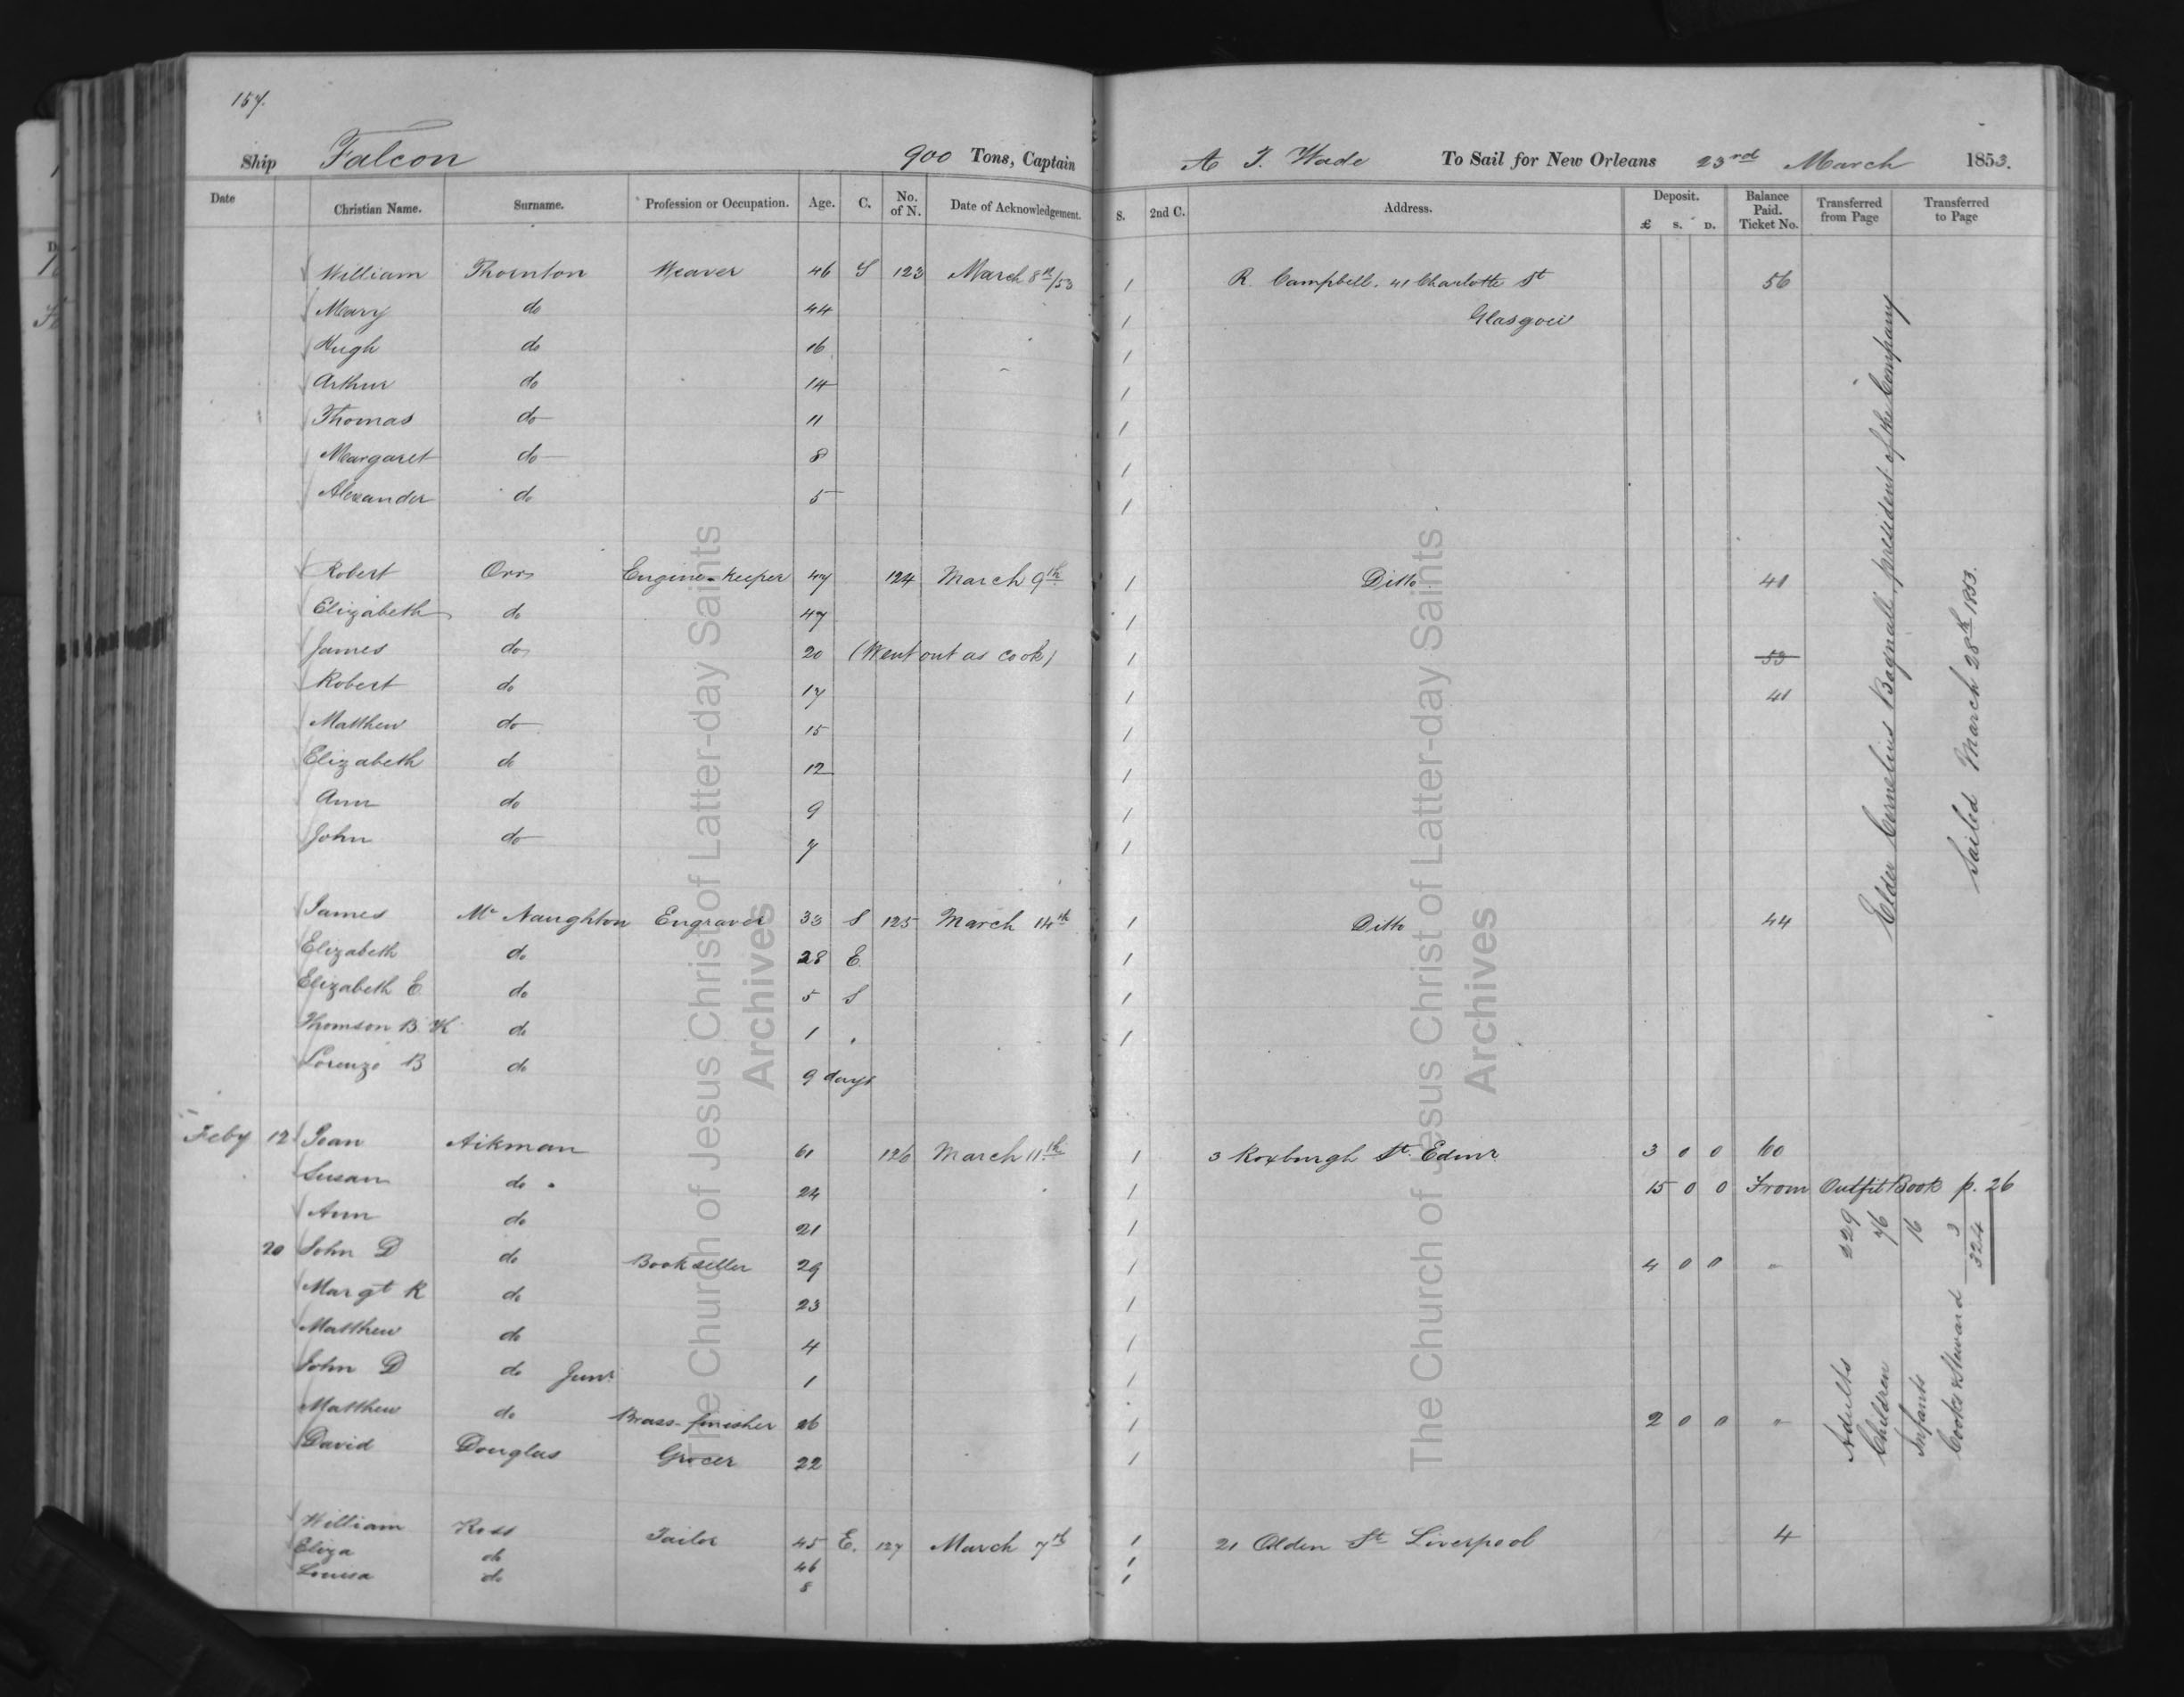 157.
Ship Falcon 900 Tons, Captain A T. Wade To Sail for New Orleans 23rd March 1853.
Date Christian Name. Surname. Profession or Occupation. Age. C. No. of N. Date of Acknowledgement. S. 2nd C. Address. Deposit. £ S. D. Balance Paid. Ticket No. Transferred from Page Transferred to Page
William Thornton Weaver 46 S 123 March 8th/53 1 R. Campbell. 41 Charlotte St 56
Mary do 44 1 Glasgow
Hugh do 16 1
Arthur do 14 1
Thomas do 11 1
Margaret do 8 1
Alexander do 5 1
Robert Orr Engine-Keeper 47 124 March 9th 1 Ditto 41
Elizabeth do 47 1
James do 20 (Went out as Cook) 1 53
Robert do 17 1 41
Matthew do 15 1
Elizabeth do 12 1
Ann do 9 1
John do 7 1
James Mc Naughton Engraver 33 S 125 March 14th 1 Ditto 44
Elizabeth do 28 E. 1
Elizabeth E. do 5 S 1
Thomson B. H do 1 1
Lorenzo B do 9 days
Feby 12 Jean Aikman 61 126 March 11th 1 3 Roxburgh St. Edinr. 3 0 0 60
Susan do 24 1 15 0 0 From Outfit Book p. 26
Ann do 21 1
20 John D do Bookseller 29 1 4 0 0 "
Margt R do 23 1
Matthew do 4 1
John D do Junr. 1 1
Matthew do Brass-finisher 26 1 2 0 0 "
David Douglas Grocer 22 1
William Ross Tailor 45 E. 127 March 7th 1 21 Olden St Liverpool 4
Eliza do 46 1
Louisa do 8 1
Elder Cornelius Bagnall, president of the Company
Sailed March 28th 1853.
Adults 229
Children 76
Infants 16
Cooks & Steward 3
324
The Church of Jesus Christ of Latter-day Saints
Archives
The Church of Jesus Christ of Latter-day Saints
Archives